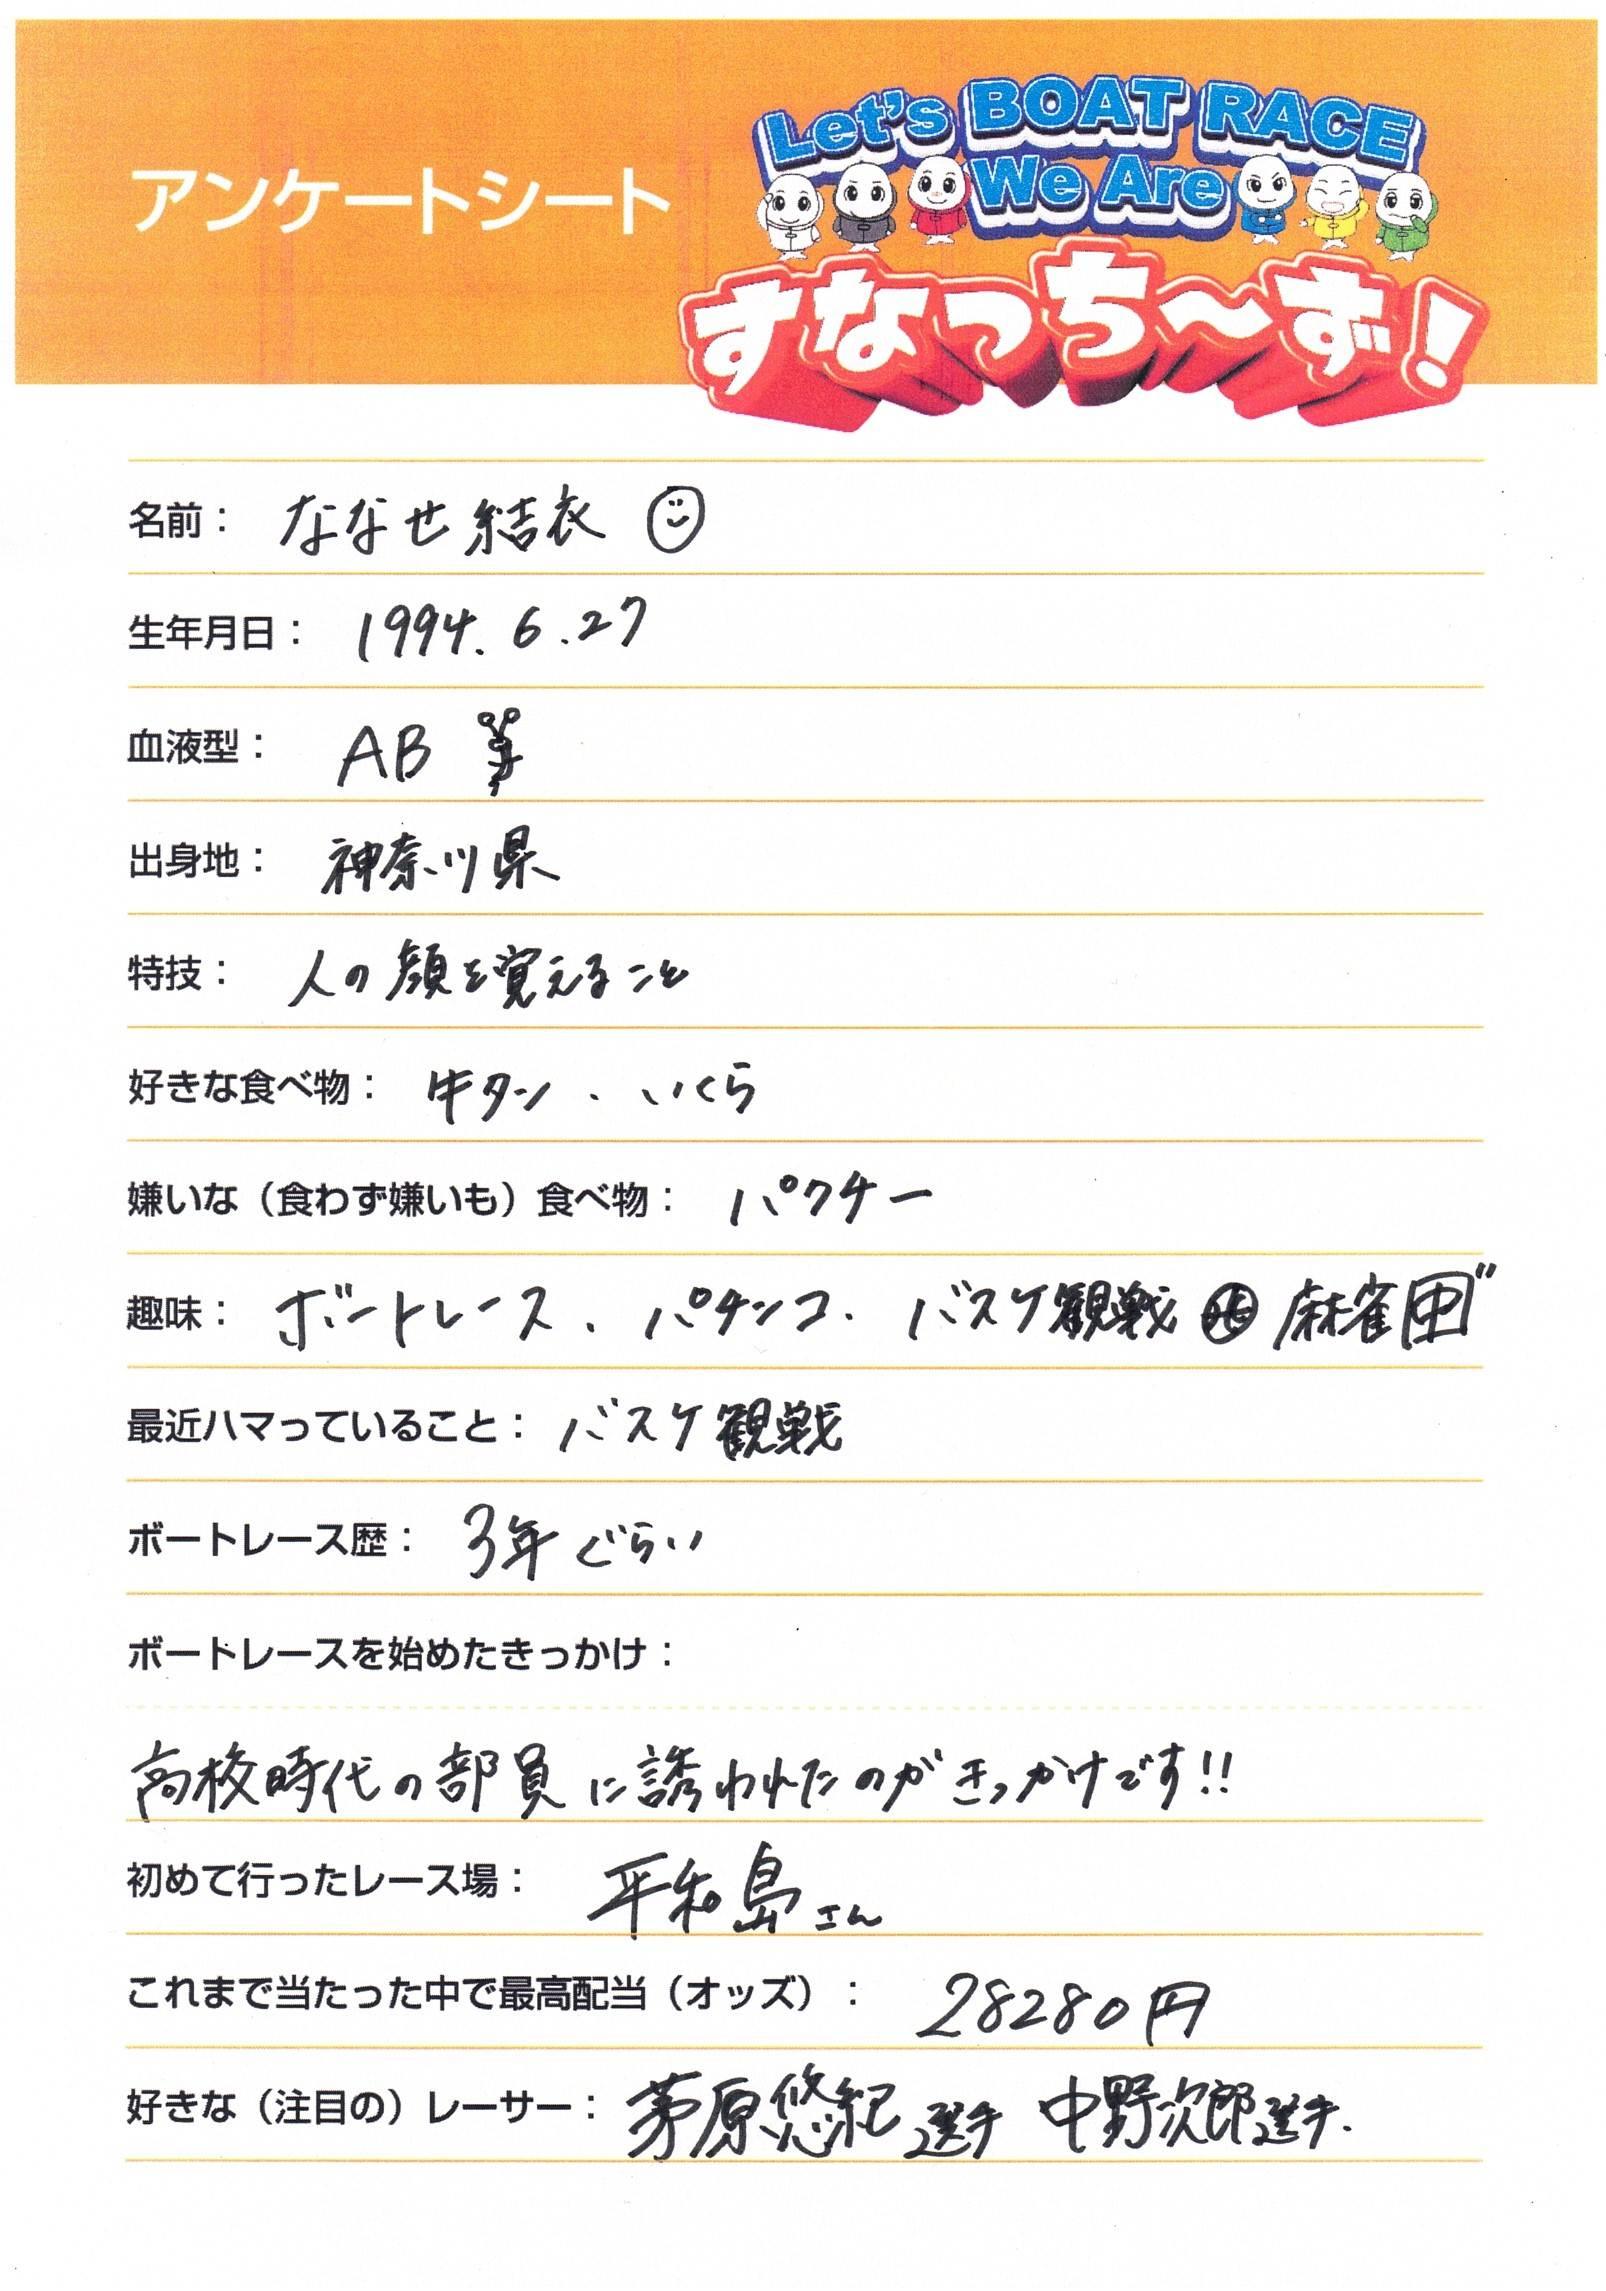 アンケートシート
Let's BOAT RACE
We Are
すなっち〜ず!
名前: ななせ結衣
生年月日: 1994.6.27
血液型: AB
出身地: 神奈川県
特技: 人の顔を覚えること
好きな食べ物: 牛タン、いくら
嫌いな(食わず嫌いも)食べ物: パクチー
趣味: ボートレース、パチンコ、バスケ観戦 麻雀 中
最近ハマっていること: バスケ観戦
ボートレース歴: 3年ぐらい
ボートレースを始めたきっかけ:
高校時代の部員に誘われたのがきっかけです!!
初めて行ったレース場: 平和島さん
これまで当たった中で最高配当(オッズ): 28280円
好きな(注目の)レーサー: 茅原悠紀選手 中野次郎選手.